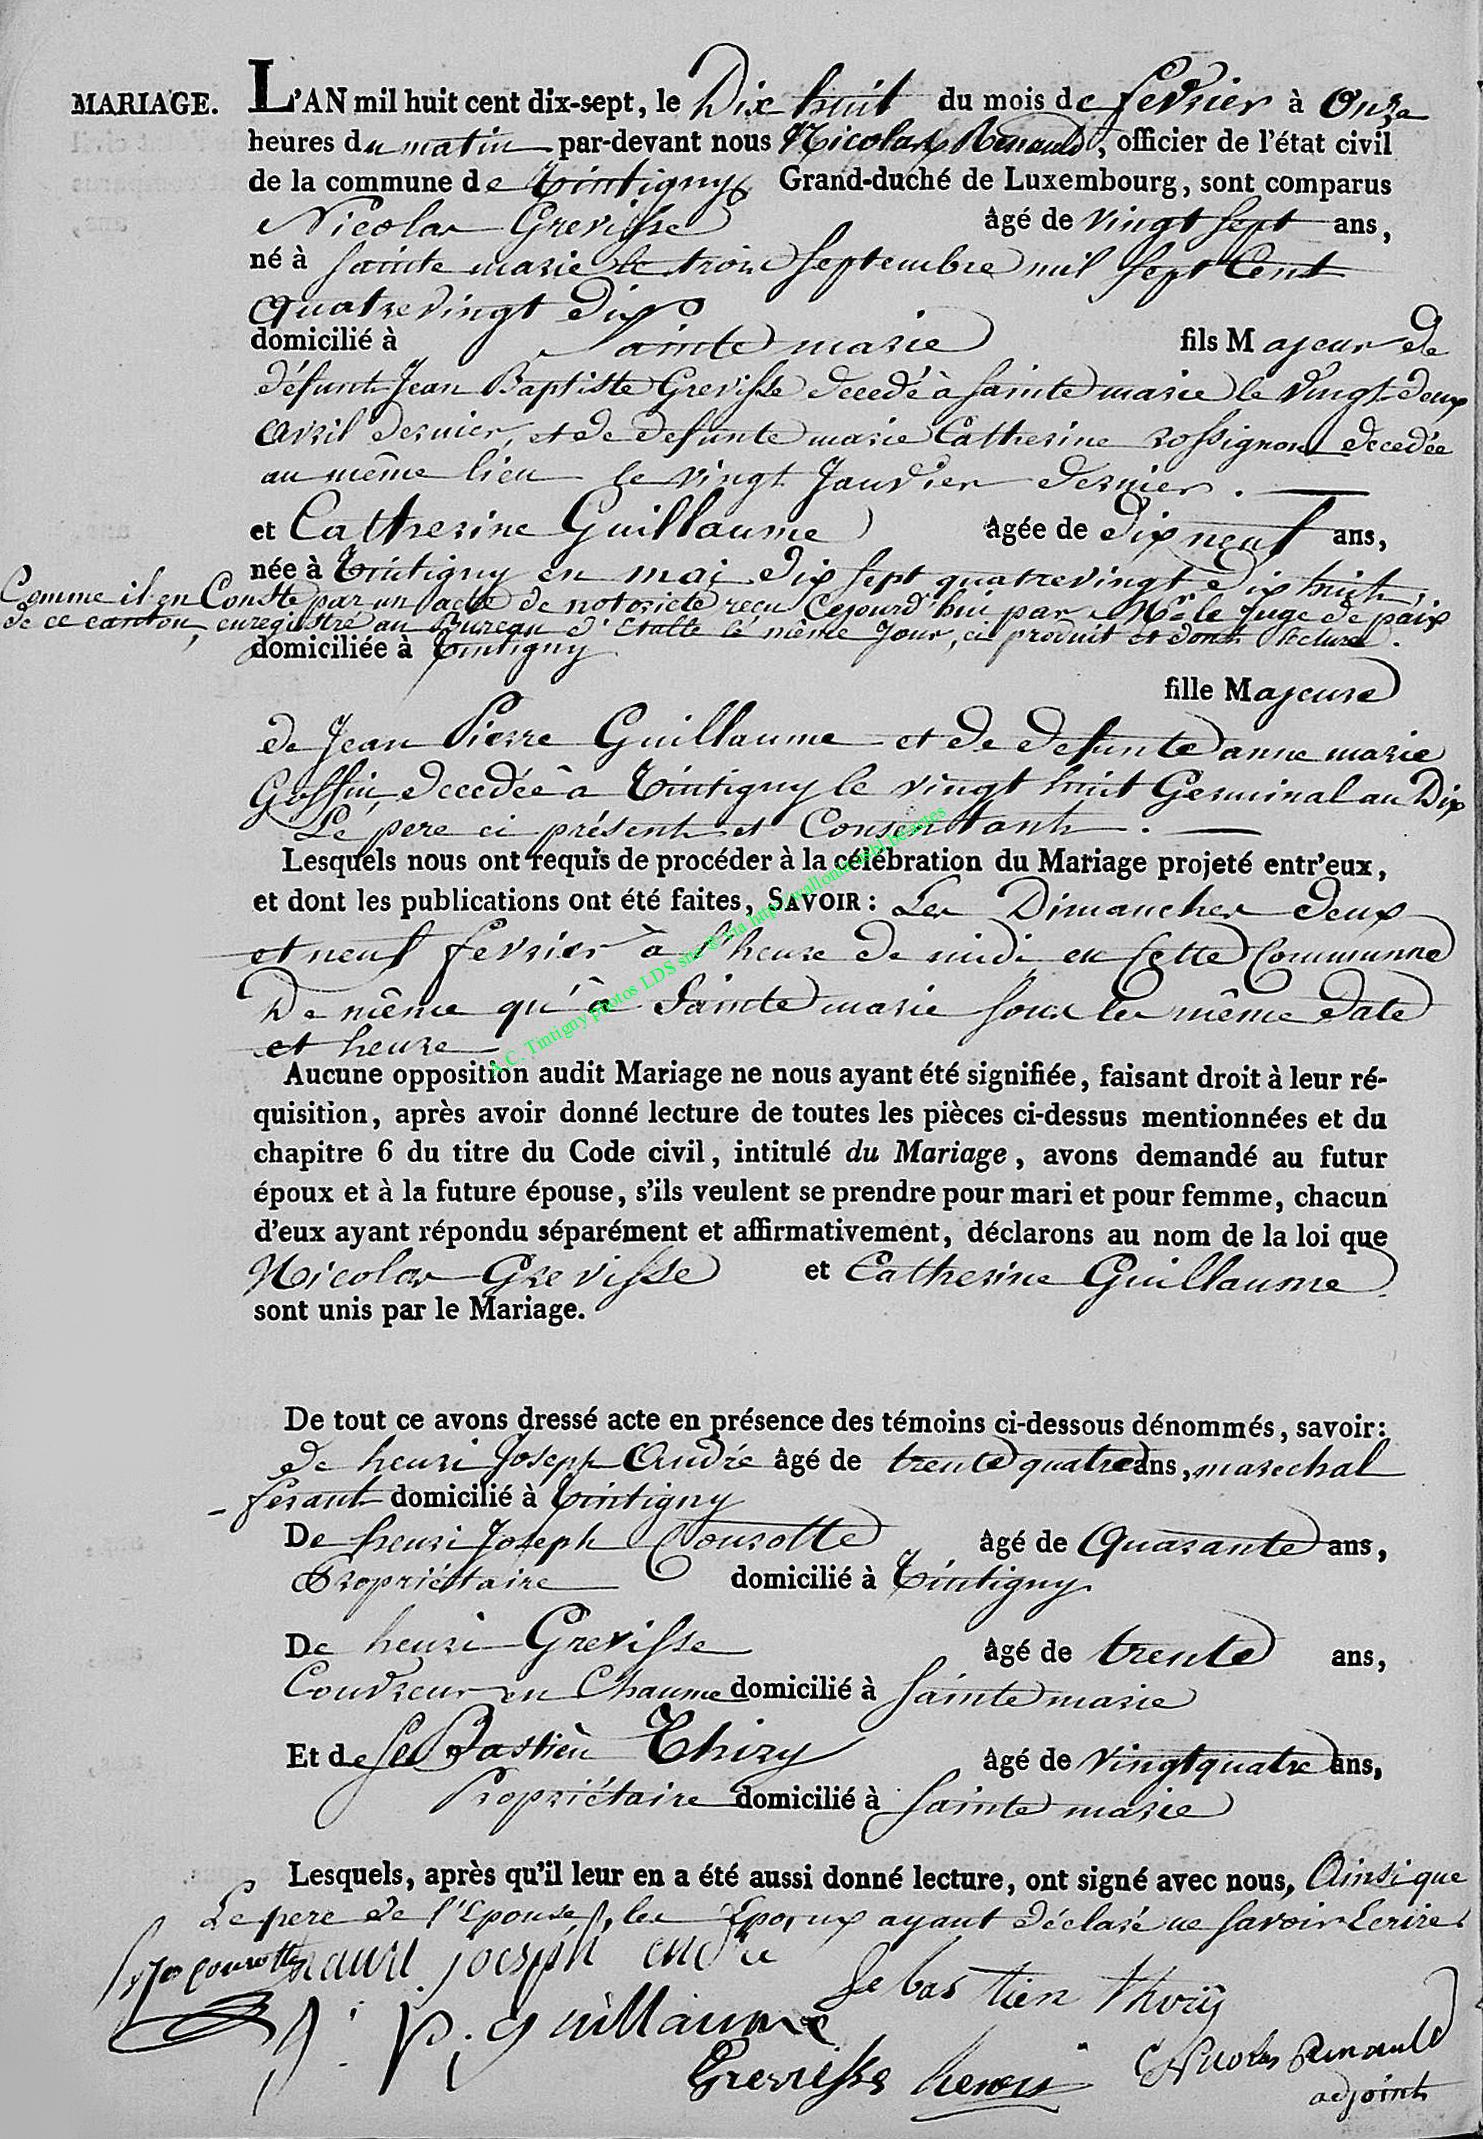 MARIAGE. L'AN mil huit cent dix-sept, le Dix huit du mois de fevrier à Onze
heures du matin par-devant nous Nicolas Renauld, officier de l'état civil
de la commune de Tintigny Grand-duché de Luxembourg, sont comparus
Nicolas Grevisse âgé de vingt sept ans,
né à Sainte marie le trois septembre mil sept Cent
quatrevingt dix
domicilié à Sainte marie fils Majeur de
défunt Jean Baptiste Grevisse decedé à Sainte marie le vingt deux
avril dernier, et de defunte marie Catherine rossignon decedée
au même lieu le vingt Janvier dernier.
et Catherine Guillaume âgée de dix neuf ans,
née à Tintigny en mai dix sept quatrevingt dix huit,
Comme il en Conste par un acte de notorieté reçu Cejourd'hui par Mr le Juge de paix
de ce canton, enregistré au Bureau d'Etalle le même Jour, ci produit et dont lecture.
domiciliée à Tintigny
fille Majeure
de Jean Pierre Guillaume et de defunte anne marie
Goffin, decedée à Tintigny le vingt huit Germinal an Dix
Le pere ci présent et Consentant.
Lesquels nous ont requis de procéder à la célébration du Mariage projeté entr'eux,
et dont les publications ont été faites, SAVOIR : Les Dimanches deux
et neuf fevrier à l'heure de midi en Cette Communne
De même qu'à Sainte marie sous les même date
et heure
Aucune opposition audit Mariage ne nous ayant été signifiée, faisant droit à leur ré-
quisition, après avoir donné lecture de toutes les pièces ci-dessus mentionnées et du
chapitre 6 du titre du Code civil, intitulé du Mariage, avons demandé au futur
époux et à la future épouse, s'ils veulent se prendre pour mari et pour femme, chacun
d'eux ayant répondu séparément et affirmativement, déclarons au nom de la loi que
Nicolas Grevisse et Catherine Guillaume
sont unis par le Mariage.
De tout ce avons dressé acte en présence des témoins ci-dessous dénommés, savoir:
de henri Joseph André âgé de trente quatre ans, marechal
ferant domicilié à Tintigny
De henri Joseph Courotte âgé de Quarante ans,
Propriétaire domicilié à Tintigny
De henri Grevisse âgé de trente ans,
Couvreur en Chaume domicilié à Sainte marie
Et de Se Bastien Thiry âgé de vingtquatre ans,
Propriétaire domicilié à Sainte marie
Lesquels, après qu'il leur en a été aussi donné lecture, ont signé avec nous, Ainsi que
Le pere de l'Epouse, les Epoux ayant déclaré ne savoir Ecrire.
courotte henri joesph
Sebastien
J. P. guillaume
Nicolas Renauld
Grevisse henri
adjoint
A.C. Tintigny photos LDS